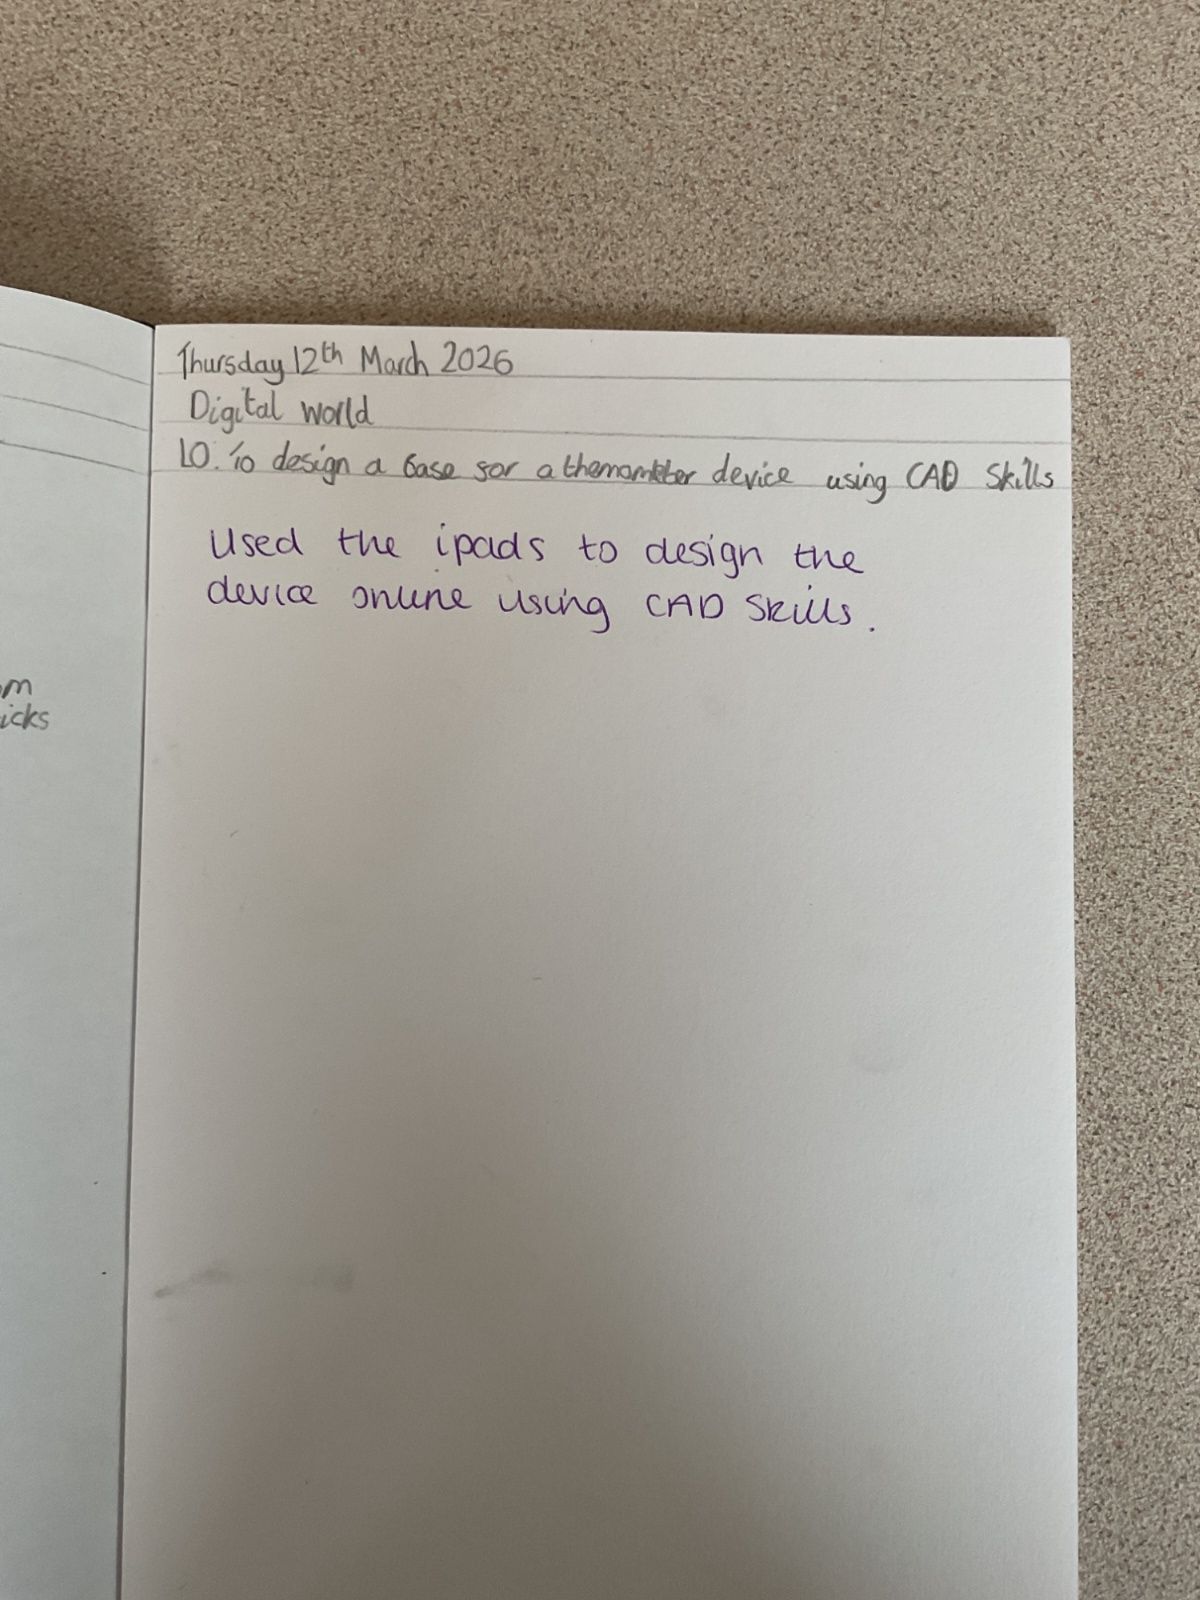 Thursday 12th March 2026
Digital world
LO. To design a base for a device using CAD Skills
Used the ipads to design the
device online using CAD Skills.
icks